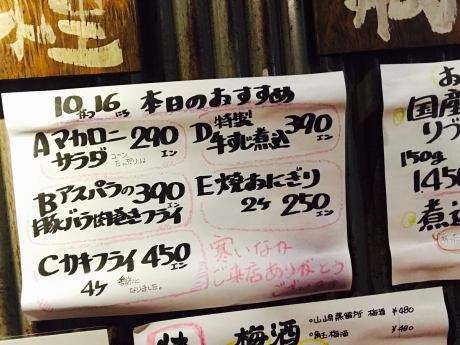 10がつ16にち 本日のおすすめ
Aマカロニサラダ 290エン
コーンたっぷり!!
B アスパラの豚バラ肉巻きフライ 390エン
Cカキフライ 450エン
4ケ
季節になりました。
D 特製牛すじ煮込 390エン
E 焼おにぎり
2ケ 250エン
寒いなか
ご来店ありがとう
ござい
お
国産
リブ
150g
1450
煮込
梅酒
・山崎蒸留所 梅酒 ¥480
梅酒 ¥480